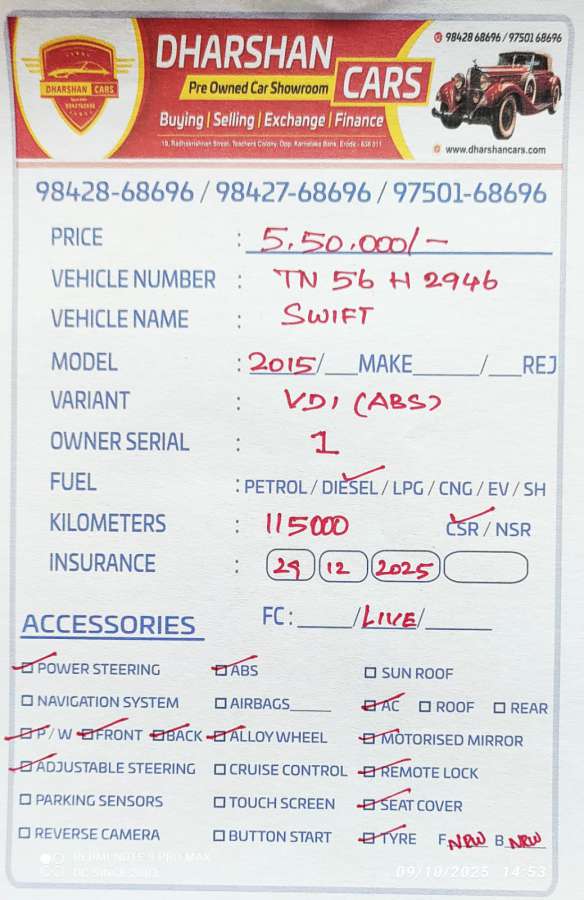 DHARSHAN CARS
DHARSHAN
CARS
Pre Owned Car Showroom
Buying | Selling | Exchange | Finance
19, Radhakrishnan Street, Teachers Colony, Opp. Karnataka Bank, Erode - 638 011
98428 68696 / 97501 68696
www.dharshancars.com
98428-68696 / 98427-68696 / 97501-68696
PRICE : 5,50,000/-
VEHICLE NUMBER : TN 56 H 2946
VEHICLE NAME : SWIFT
MODEL : 2015/___MAKE______/___REJ
VARIANT : VDI (ABS)
OWNER SERIAL : 1
FUEL : PETROL / DIESEL / LPG / CNG / EV / SH
KILOMETERS : 115000 CSR / NSR
INSURANCE : 29 12 2025
FC : _____/LIVE/______
ACCESSORIES
POWER STEERING ABS SUN ROOF
NAVIGATION SYSTEM AIRBAGS_____ AC ROOF REAR
P/W FRONT BACK ALLOY WHEEL MOTORISED MIRROR
ADJUSTABLE STEERING CRUISE CONTROL REMOTE LOCK
PARKING SENSORS TOUCH SCREEN SEAT COVER
REVERSE CAMERA BUTTON START TYRE F NEW B NEW
REDMI NOTE 9 PRO MAX
DC SINCE 2003
09/10/2025 14:53